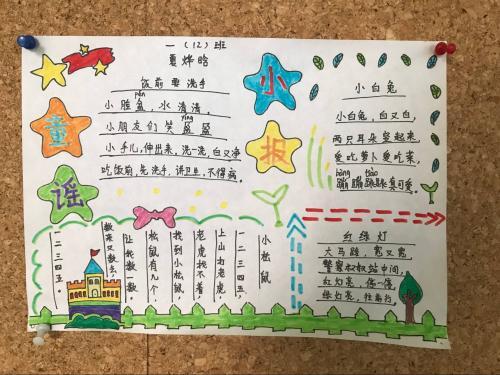 一（12）班
夏烨晗
童
谣
小
报
饭前要洗手
pén
小脸盆，水清清，
yíng
小朋友们笑盈盈
小手儿，伸出来，洗一洗，白又净
吃饭前，先洗手，讲卫生，不得病。
小白兔
小白兔，白又白，
两只耳朵竖起来，
爱吃萝卜爱吃菜，
bèng tiào
蹦蹦跳跳真可爱。
小松鼠
一二三四五，
上山打老虎，
老虎找不着，
找到小松鼠，
松鼠有几个
让我数一数，
数来又数去，
一二三四五。
红绿灯
大马路，宽又宽，
警察叔叔站中间，
红灯亮，停一停，
绿灯亮，往前行。